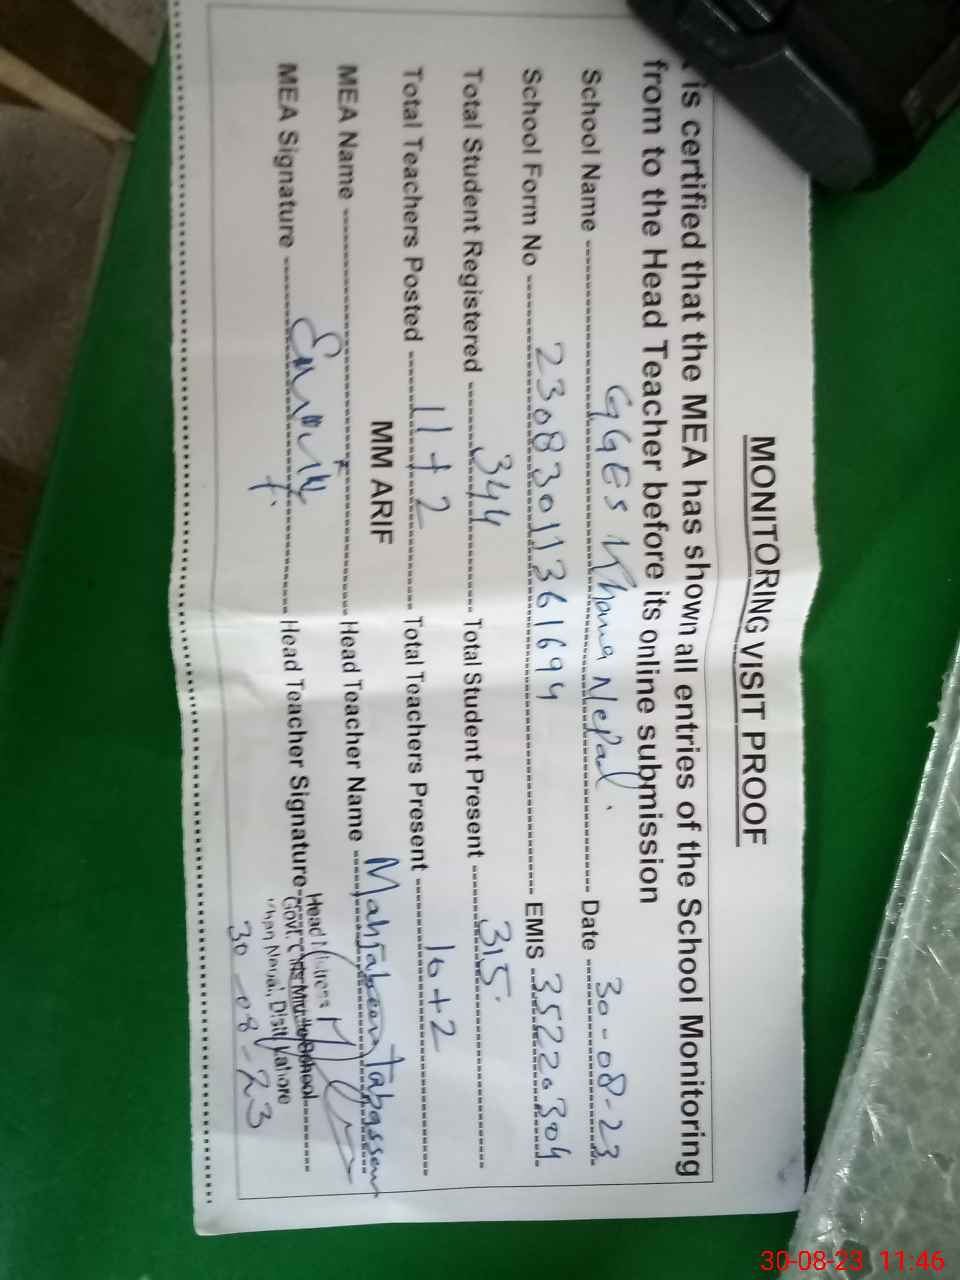 MONITORING VISIT PROOF
is certified that the MEA has shown all entries of the School Monitoring
from to the Head Teacher before its online submission
School Name GGES Khana Nepal. Date 30-08-23
School Form No 23083011361694 EMIS 35220304
Total Student Registered 344 Total Student Present 315.
Total Teachers Posted 11+2 Total Teachers Present 10+2
MM ARIF
MEA Name Head Teacher Name Mahjabeen Tabassum
MEA Signature Head Teacher Signature
Head Mistress
Govt. Girls School
Distt Lahore
30-08-23
30-08-23 11:46